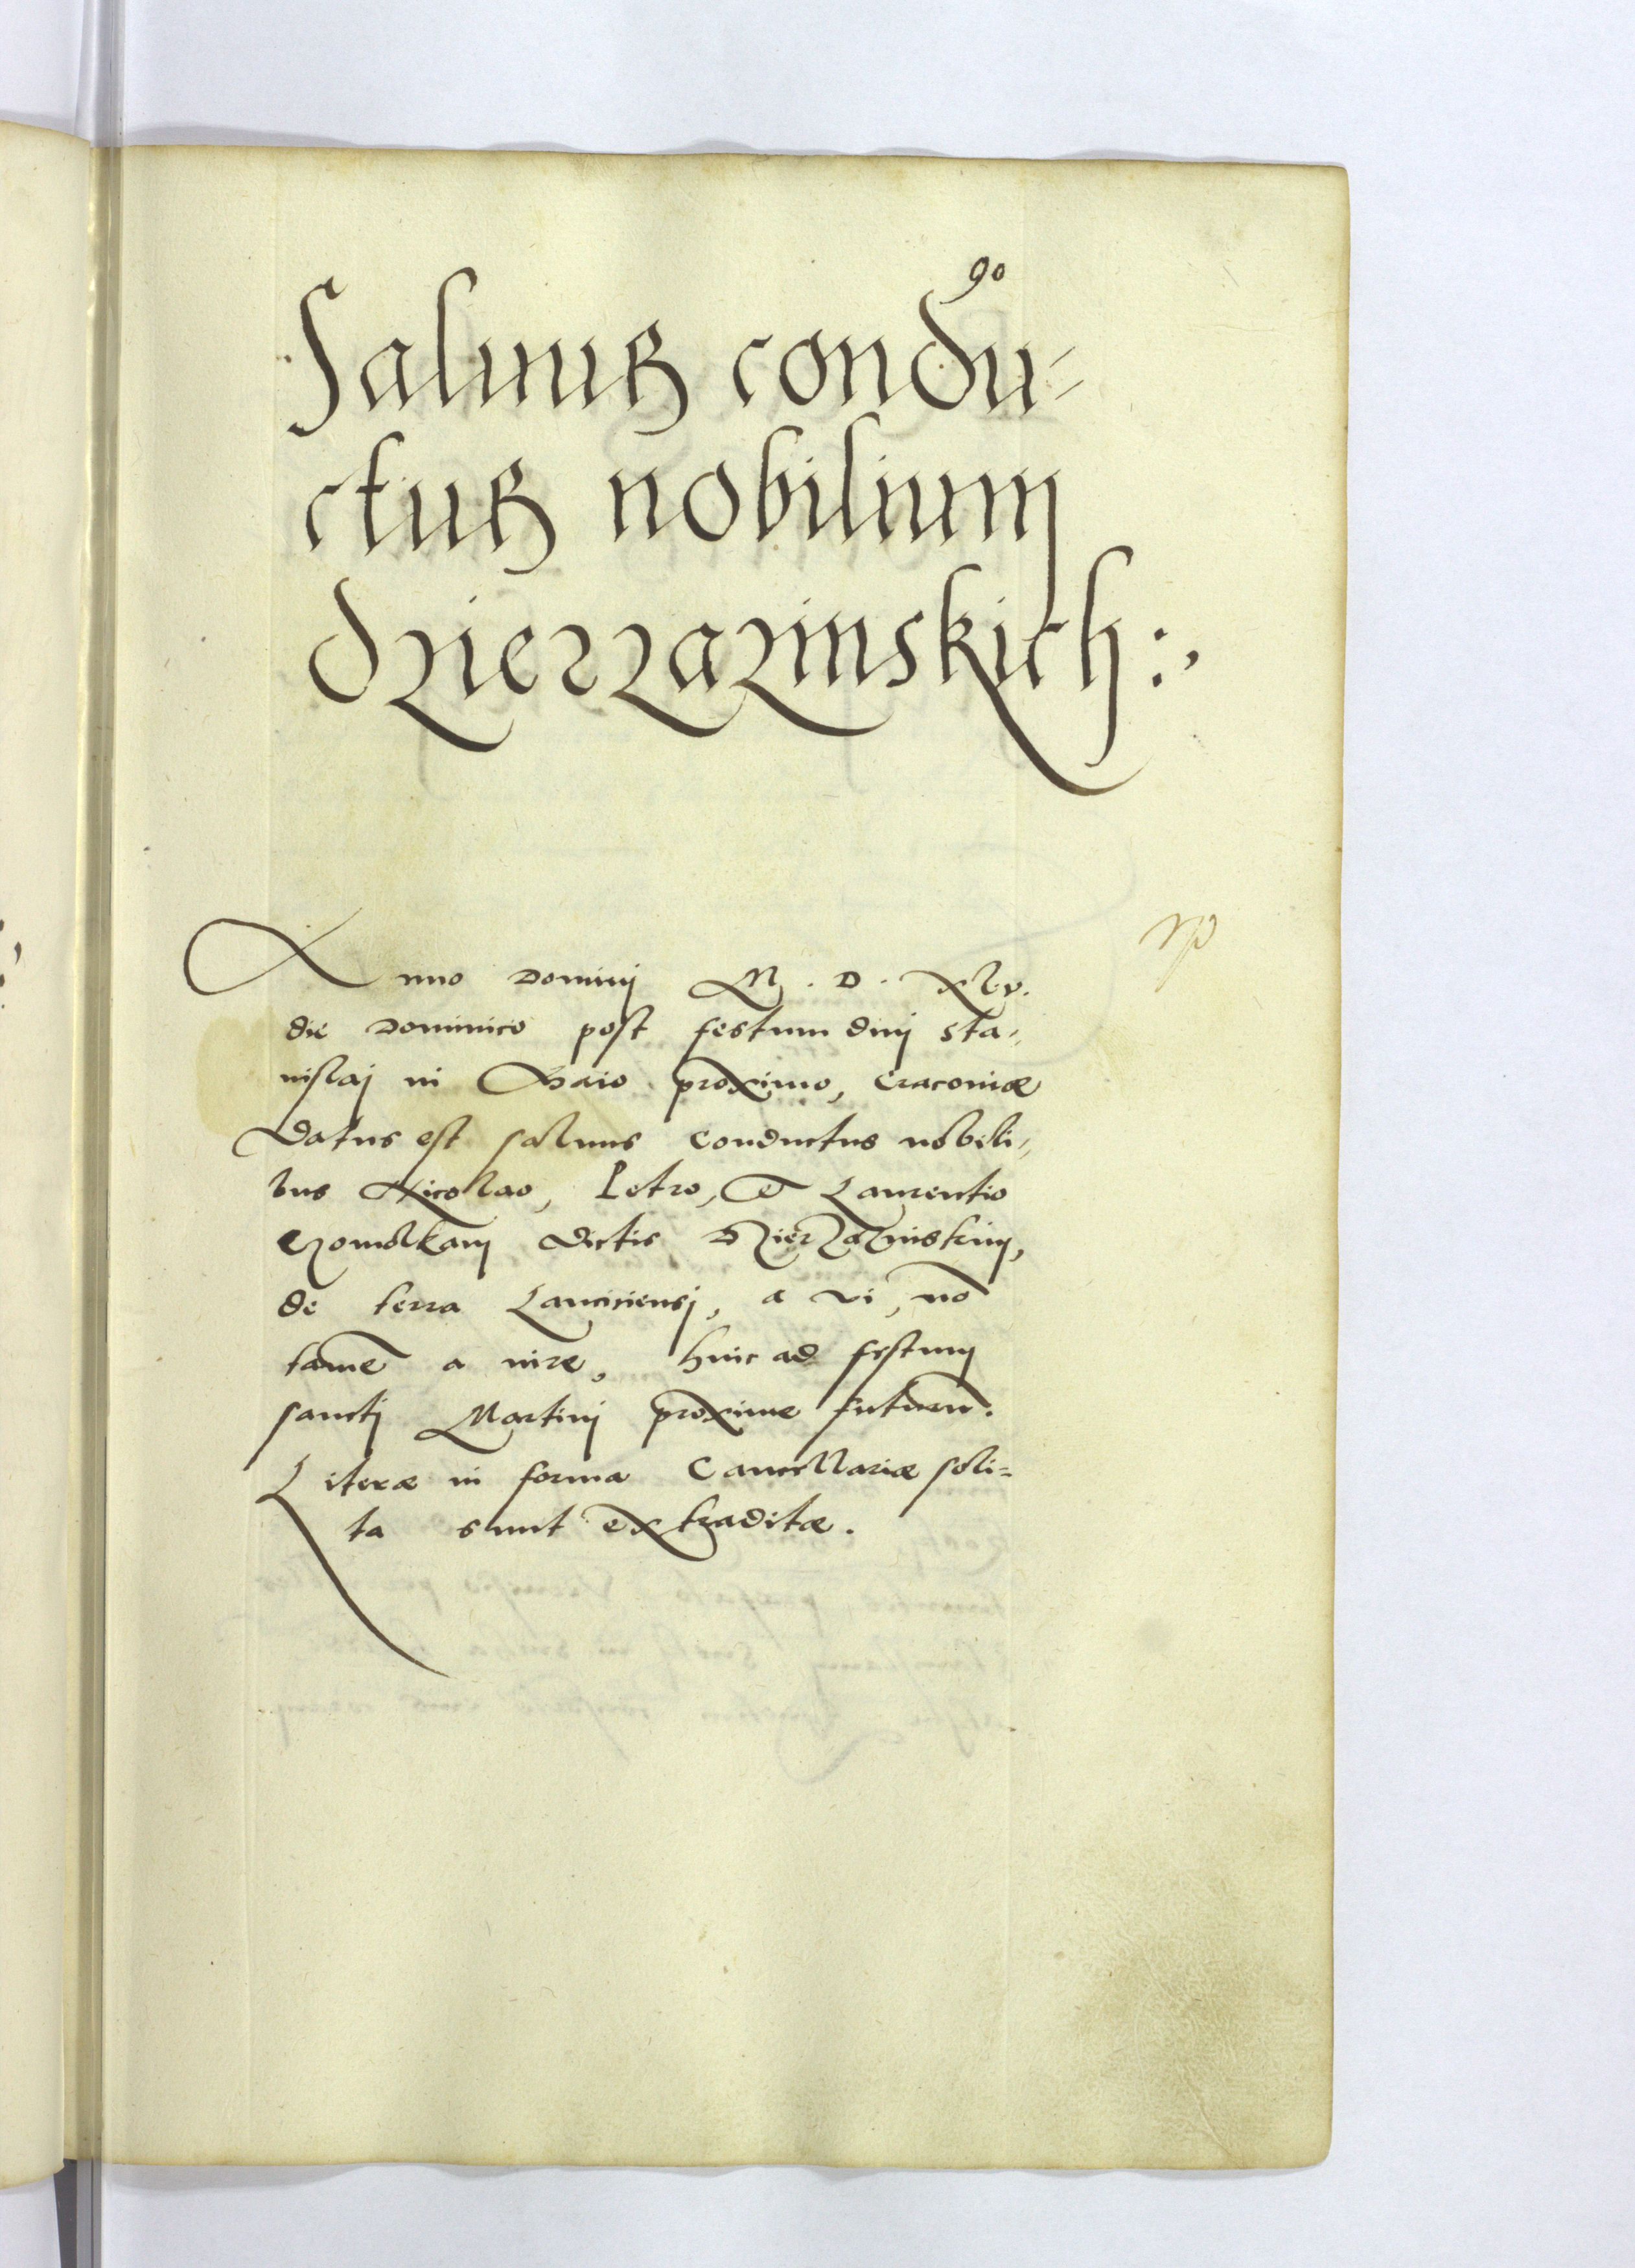 90
Saluus condu-
ctus nobilium
dzierzazinskich:,
Anno Dominj M. D. xlv.
die Dominico post festum diuj sta-
nislaj in Maio proximo, Cracouiæ
Datus est saluus conductus nobili-
bus Nicolao, Petro, et Laurentio
dictis Dzierzazinskim,
de terra Lanciciensj, a vi, nō
tamē a iure, hinc ad festum
sanctj Martinj proxime futurū.
Literæ in forma Cancellariæ soli-
ta sunt extraditæ.